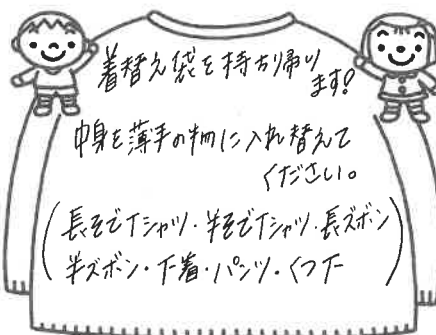 着替え袋を持ち帰り
ます!
中身を薄手の物に入れ替えて
ください。
(長そでTシャツ・半そでTシャツ・長ズボン
半ズボン・下着・パンツ・くつ下)